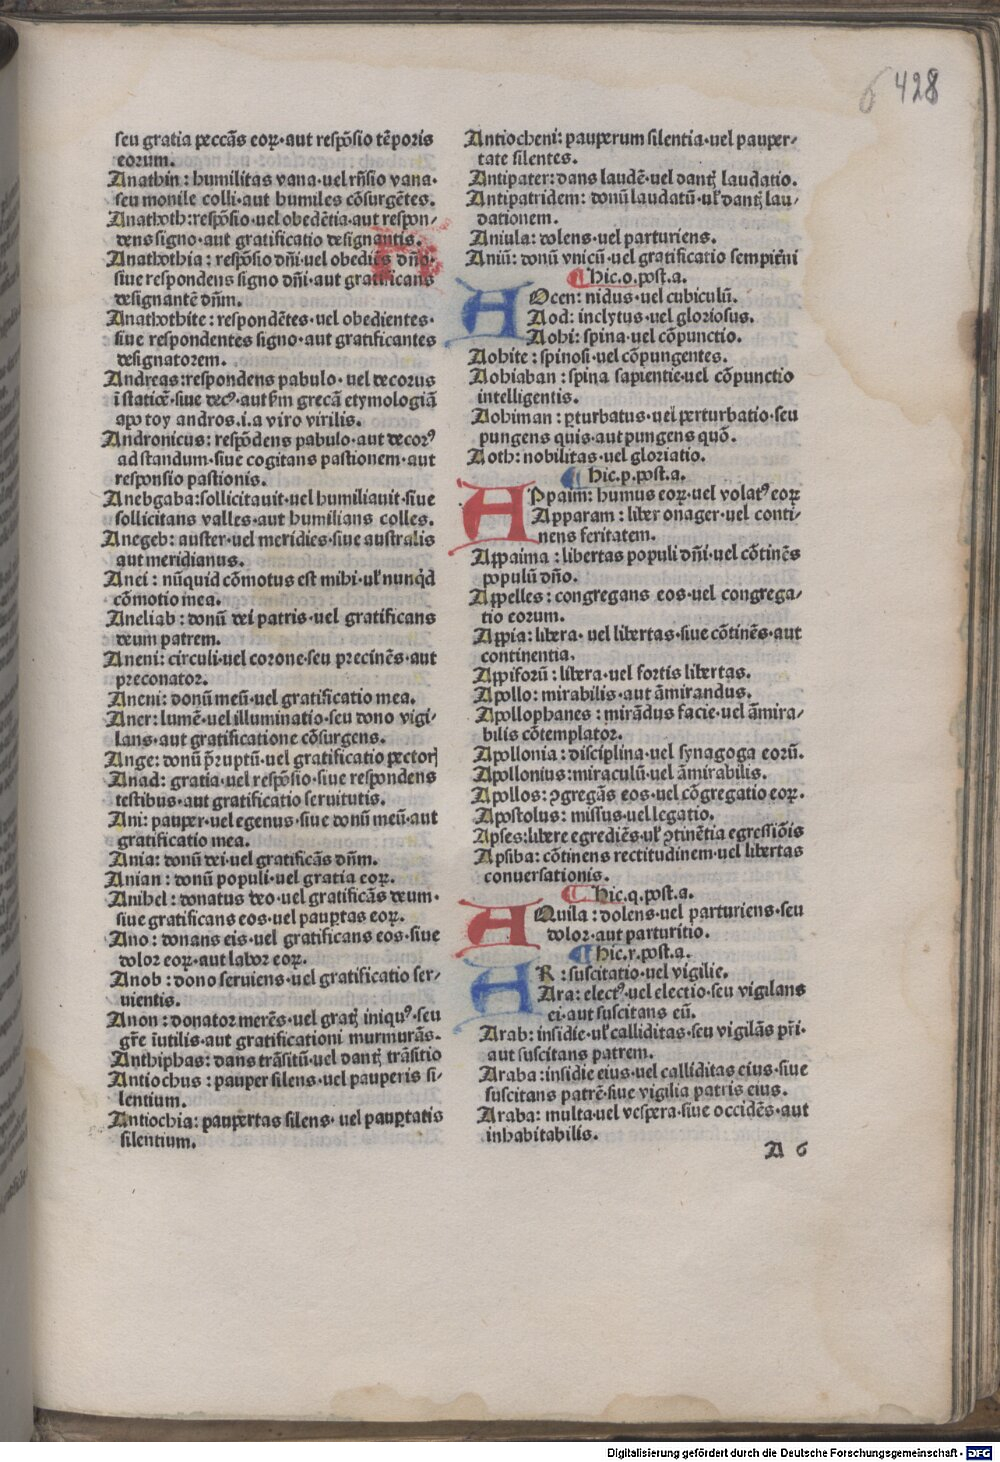 6 428
seu gratia peccãs eoꝝ·aut respõsio tẽporis
eorum.
Anathin : humilitas vana·uel rñsio vana·
seu monile colli·aut humiles cõsurgẽtes.
Anathoth:respõsio·uel obedẽtia·aut respon⸗
dens signo·aut gratificatio designantis.
Anathothia : respõsio dñi·uel obediẽs dño·
siue respondens signo dñi·aut gratificans
designantẽ dñm.
Anathothite : respondẽtes·uel obedientes·
siue respondentes signo·aut gratificantes
designatorem.
Andreas:respondens pabulo·uel decorus
ĩ staticẽ·siue decꝰ·aut ẜm grecã etymologiã
apo toy andros.i.a viro virilis.
Andronicus : respõdens pabulo·aut decorꝰ
ad standum·siue cogitans pastionem·aut
responsio pastionis.
Anebgaba:sollicitauit·uel humiliauit·siue
sollicitans valles·aut humilians colles.
Anegeb: auster·uel meridies·siue australis
aut meridianus.
Anei : nũquid cõmotus est mihi·uł nunqͥd
cõmotio mea.
Aneliab : donũ dei patris·uel gratificans
deum patrem.
Anemi: circuli·uel corone·seu precinẽs·aut
preconator.
Aneni: donũ meũ·uel gratificatio mea.
Aner: lumẽ·uel illuminatio·seu dono vigi⸗
lans·aut gratificatione cõsurgens.
Ange: donũ p̃ruptũ·uel gratificatio pectorꝭ
Anad: gratia·uel respõsio·siue respondens
testibus·aut gratificatio seruitutis.
Ani: pauper·uel egenus·siue donũ meũ·aut
gratificatio mea.
Ania: donũ dei·uel gratificãs dñm.
Anian : donũ populi·uel gratia eoꝝ.
Anibel : donatus deo·uel gratificãs deum·
siue gratificans eos·uel paupꝑtas eoꝝ.
Ano: donans eis·uel gratificans eos·siue
dolor eoꝝ·aut labor eoꝝ.
Anob : dono seruiens·uel gratificatio ser⸗
uientis.
Anon : donator merẽs·uel gratꝭ iniquꝰ·seu
gr̃e ĩutilis·aut gratificationi murmurãs.
Anthiphas: dans trãsitũ·uel dantꝭ trãsitio
Antiochus : pauper silens·uel pauperis si⸗
lentium.
Antiochia: paupertas silens·uel paupꝑtatis
silentium.
Antiocheni: pauperum silentia·uel pauper⸗
tate silentes.
Antipater: dans laudẽ·uel dantꝭ laudatio.
Antipatridem: donũ laudatũ·uł dantꝭ lau⸗
dationem.
Aniula: dolens·uel parturiens.
Aniũ: donũ vnicũ·uel gratificatio sempit̃ni
¶ hic.o.post.a.
AOcen: nidus·uel cubiculũ.
Aod: inclytus·uel gloriosus.
Aohi: spina·uel cõpunctio.
Aohite : spinosi·uel cõpungentes.
Aohiaban : spina sapientie·uel cõpunctio
intelligentis.
Aohiman : ꝑturbatus·uel perturbatio·seu
pungens quis·aut pungens quõ.
Aoth: nobilitas·uel gloriatio.
¶ hic.p.post.a.
APpaim: humus eoꝝ·uel volatꝰ eoꝝ
Apparam : liber onager·uel conti⸗
nens feritatem.
Appaima : libertas populi dñi·uel cõtinẽs
populũ dño.
Appelles : congregans eos·uel congrega⸗
tio eorum.
Appia: libera·uel libertas·siue cõtinẽs·aut
continentia.
Appiforũ : libera·uel fortis libertas.
Apollo : mirabilis·aut ãmirandus.
Apollophanes : mirãdus facie·uel ãmira⸗
bilis cõtemplator.
Apollonia : disciplina·uel synagoga eorũ.
Apollonius:miraculũ·uel ãmirabilis.
Apollos: ꝯgregãs eos·uel cõgregatio eoꝝ.
Apostolus: missus·uel legatio.
Apses:libere egrediẽs·uł ꝯtinẽtia egressiõis
Apsiba: cõtinens rectitudinem·uel libertas
conuersationis.
¶ hic.q.post.a.
AQuila : dolens·uel parturiens·seu
dolor·aut parturitio.
¶ hic.r.post.a.
AR : suscitatio·uel vigilie.
Ara: electꝰ·uel electio·seu vigilans
ei·aut suscitans eũ.
Arab: insidie·uł calliditas·seu vigilãs pr̃i·
aut suscitans patrem.
Araba : insidie eius·uel calliditas eius·siue
suscitans patrẽ·siue vigilia patris eius.
Araba: multa·uel vespera·siue occidẽs·aut
inhabitabilis.
A 6
Digitalisierung gefördert durch die Deutsche Forschungsgemeinschaft - DFG